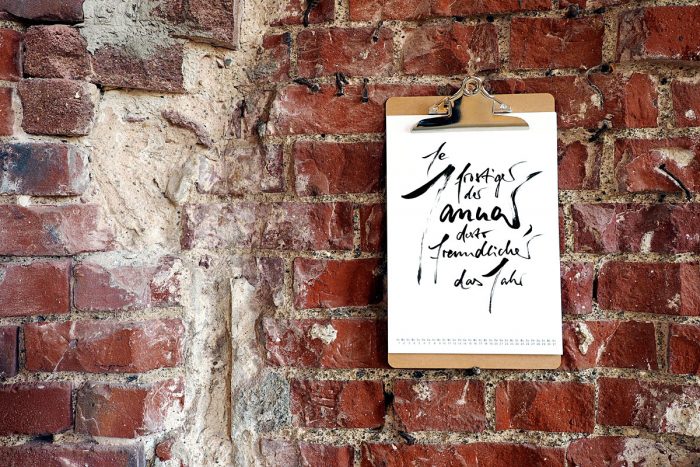 Je
frostiger
der
Januar
desto
freundlicher
das Jahr